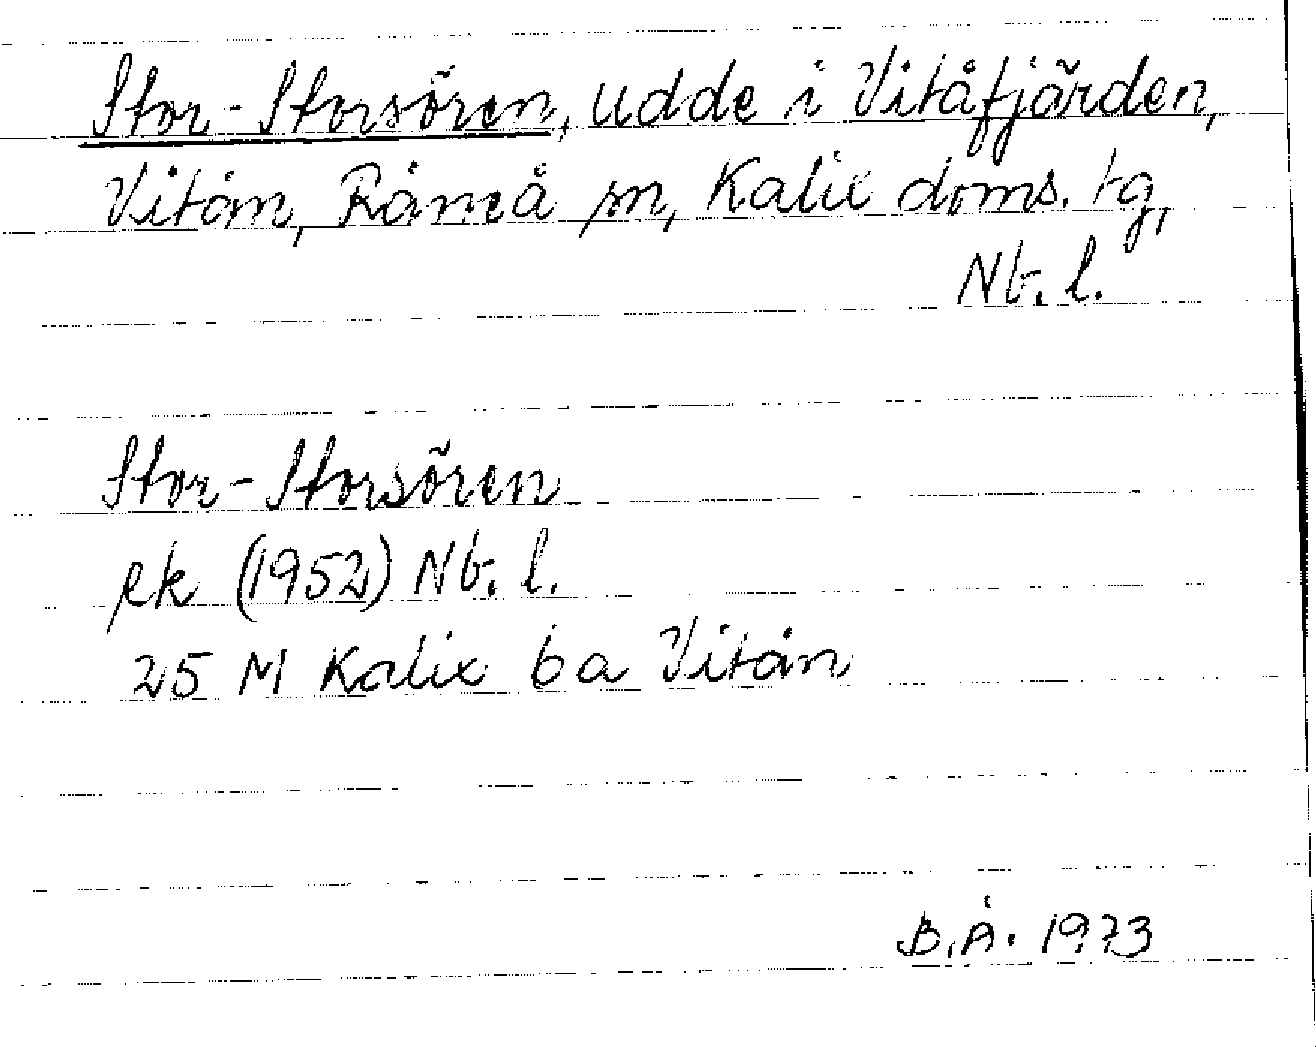 Stor-Storsören, udde i Vitåfjärden,
Vitån, Råneå sn, Kalix doms. tg,
Nb. l.
Stor-Storsören
ek (1952) Nb. l.
25 M Kalix 6a Vitån
B.Å. 1973